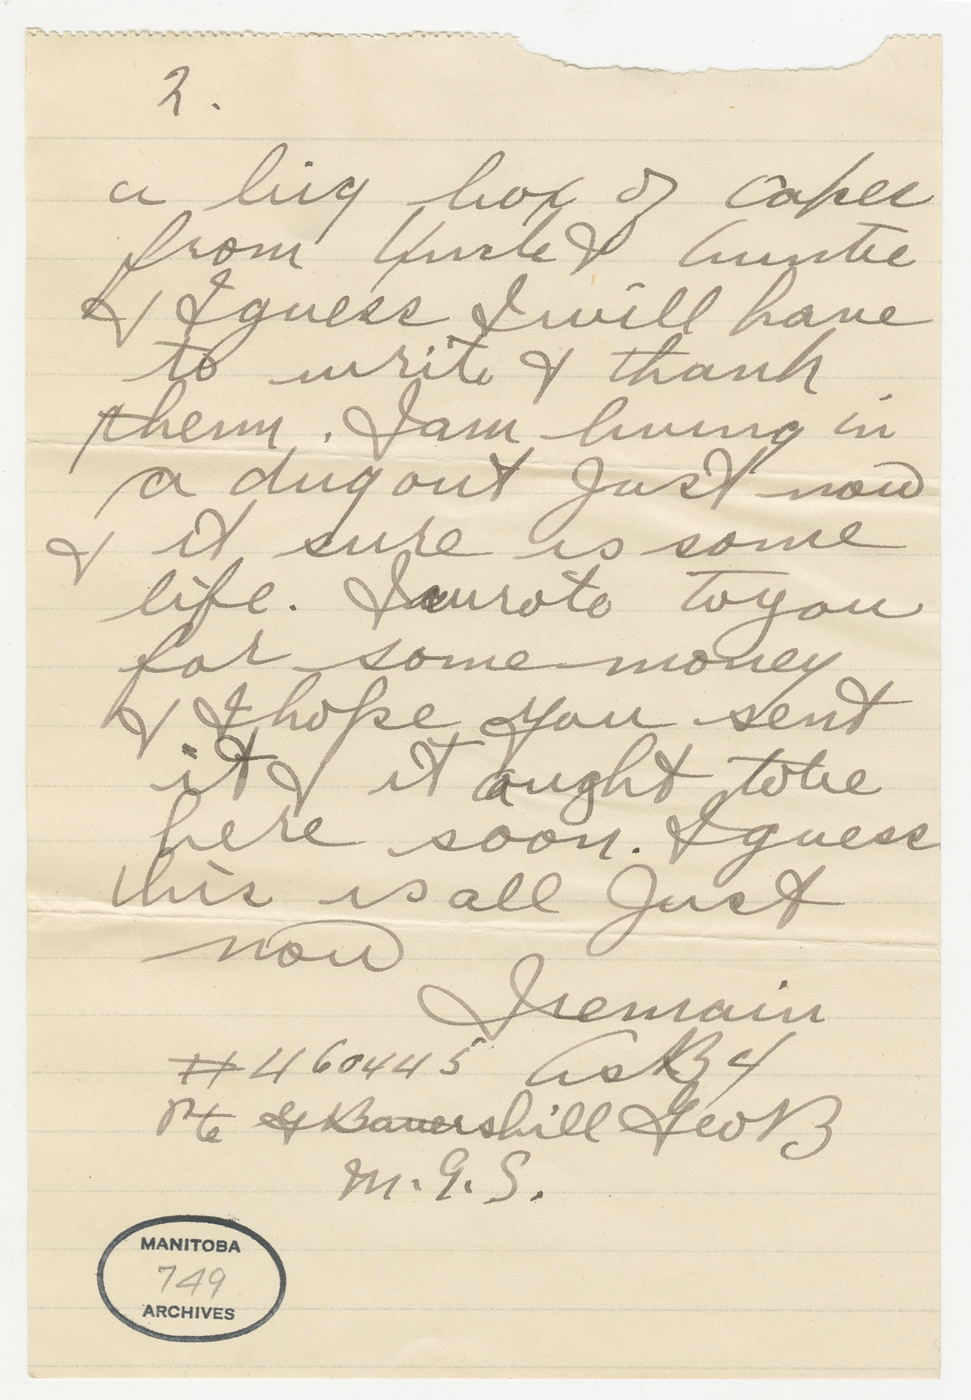 2.
a big box of cakes
from Uncle & Auntie
& I guess I will have
to write & thank
them. I am living in
a dugout Just now
& it sure is some
life. I wrote to you
for some money
& I hope you sent
it & it aught to be
here soon. I guess
this is all Just
now
I remain
# 460445
Pte G Battershill Geo B
M.G.S.
MANITOBA
749
ARCHIVES